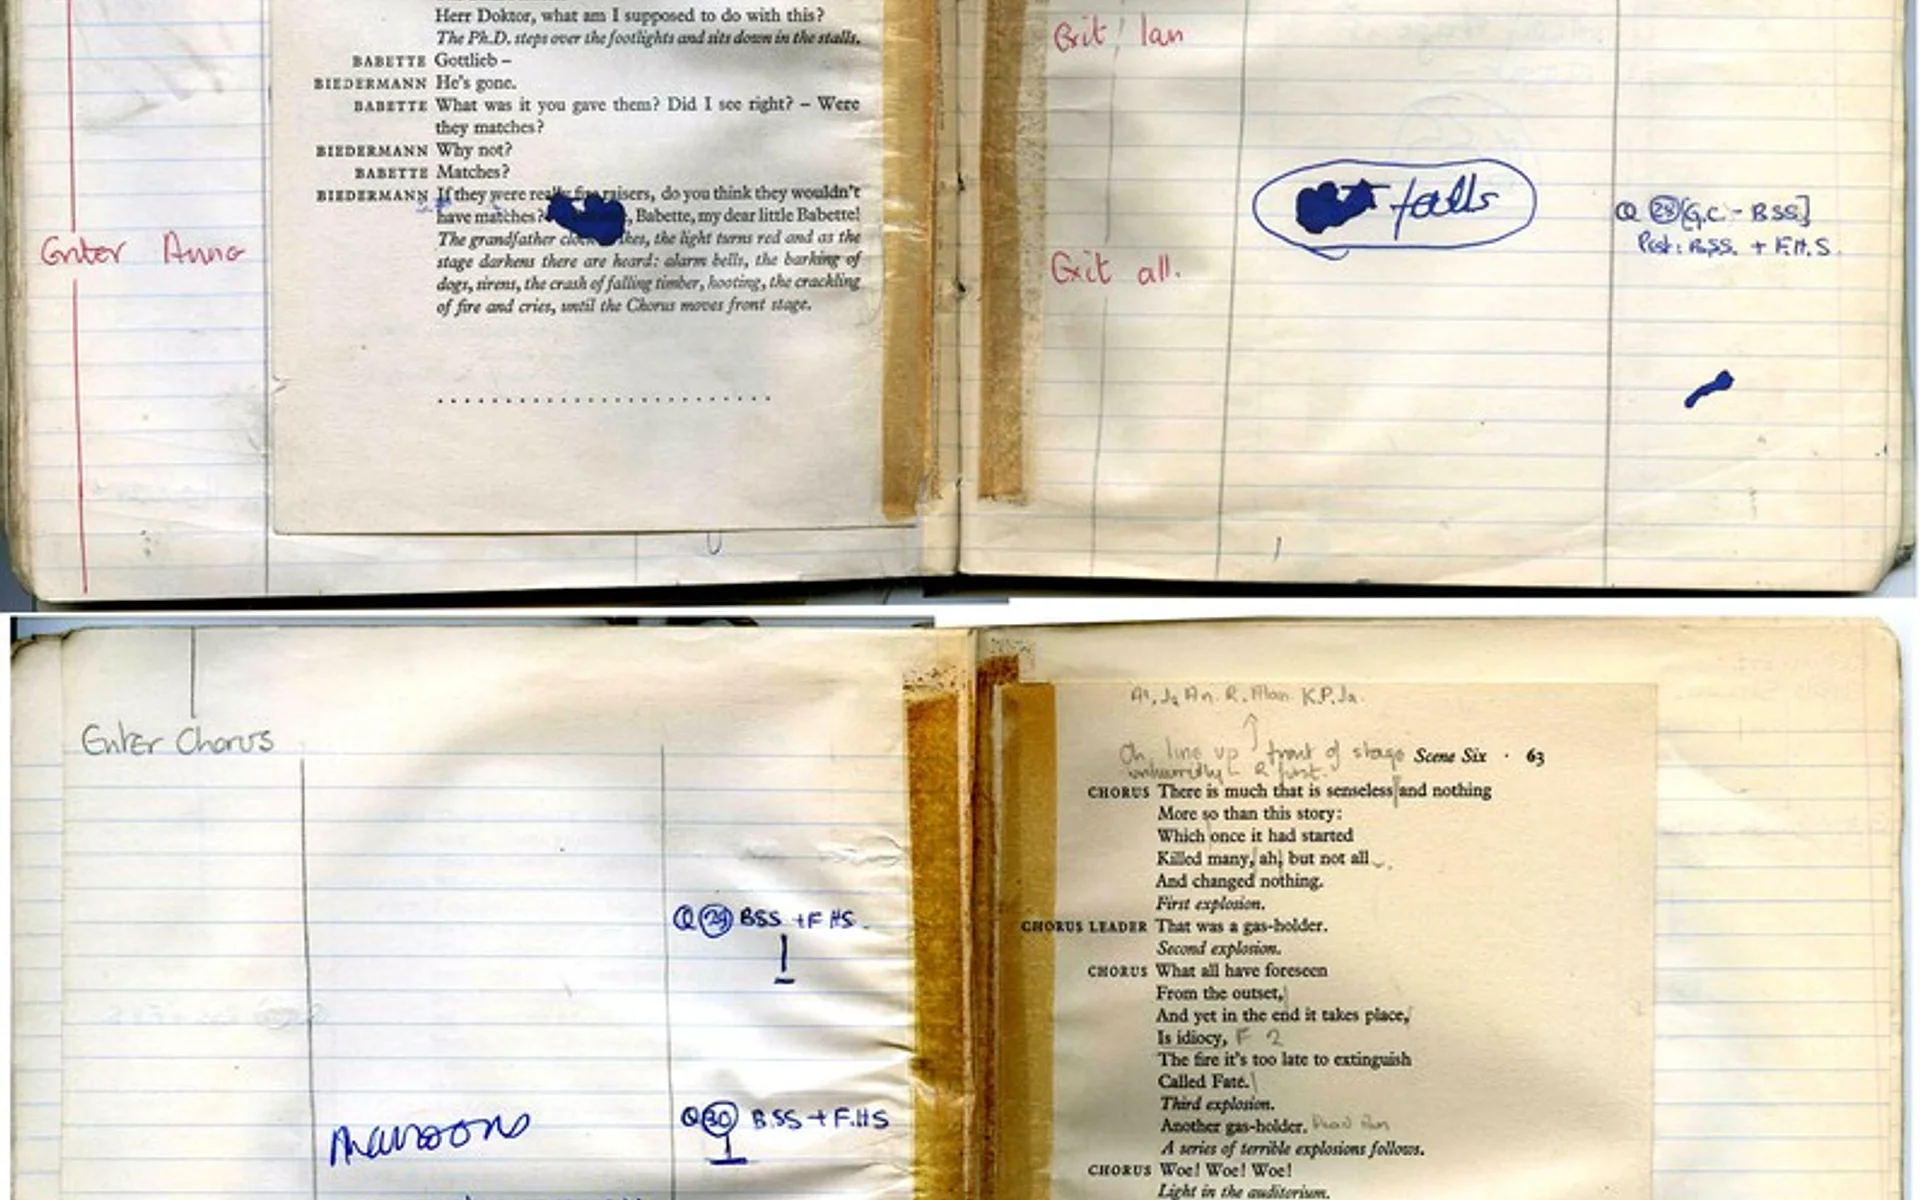 Herr Doktor, what am I supposed to do with this?
The Ph.D. steps over the footlights and sits down in the stalls.
BABETTE Gottlieb –
BIEDERMANN He's gone.
BABETTE What was it you gave them? Did I see right? – Were
they matches?
BIEDERMANN Why not?
BABETTE Matches?
BIEDERMANN If they were really fire raisers, do you think they wouldn't
have matches? , Babette, my dear little Babette!
The grandfather clock strikes, the light turns red and as the
stage darkens there are heard: alarm bells, the barking of
dogs, sirens, the crash of falling timber, hooting, the crackling
of fire and cries, until the Chorus moves front stage.
Enter Anna
Exit Ian
falls
Q 28 [G.C. - BSS]
Post: B.SS. + F.H.S.
Exit all.
Enter Chorus
Q 29 BSS + F HS.
Maroons
Q 30 B.SS + F.HS
An. R. Alan K.P. Ja.
Ch. line up front of stage
unhurriedly & first.
Scene Six · 63
CHORUS There is much that is senseless and nothing
More so than this story:
Which once it had started
Killed many, ah, but not all
And changed nothing.
First explosion.
CHORUS LEADER That was a gas-holder.
Second explosion.
CHORUS What all have foreseen
From the outset,
And yet in the end it takes place,
Is idiocy, F 2
The fire it's too late to extinguish
Called Fate.
Third explosion.
Another gas-holder.
A series of terrible explosions follows.
CHORUS Woe! Woe! Woe!
Light in the auditorium.